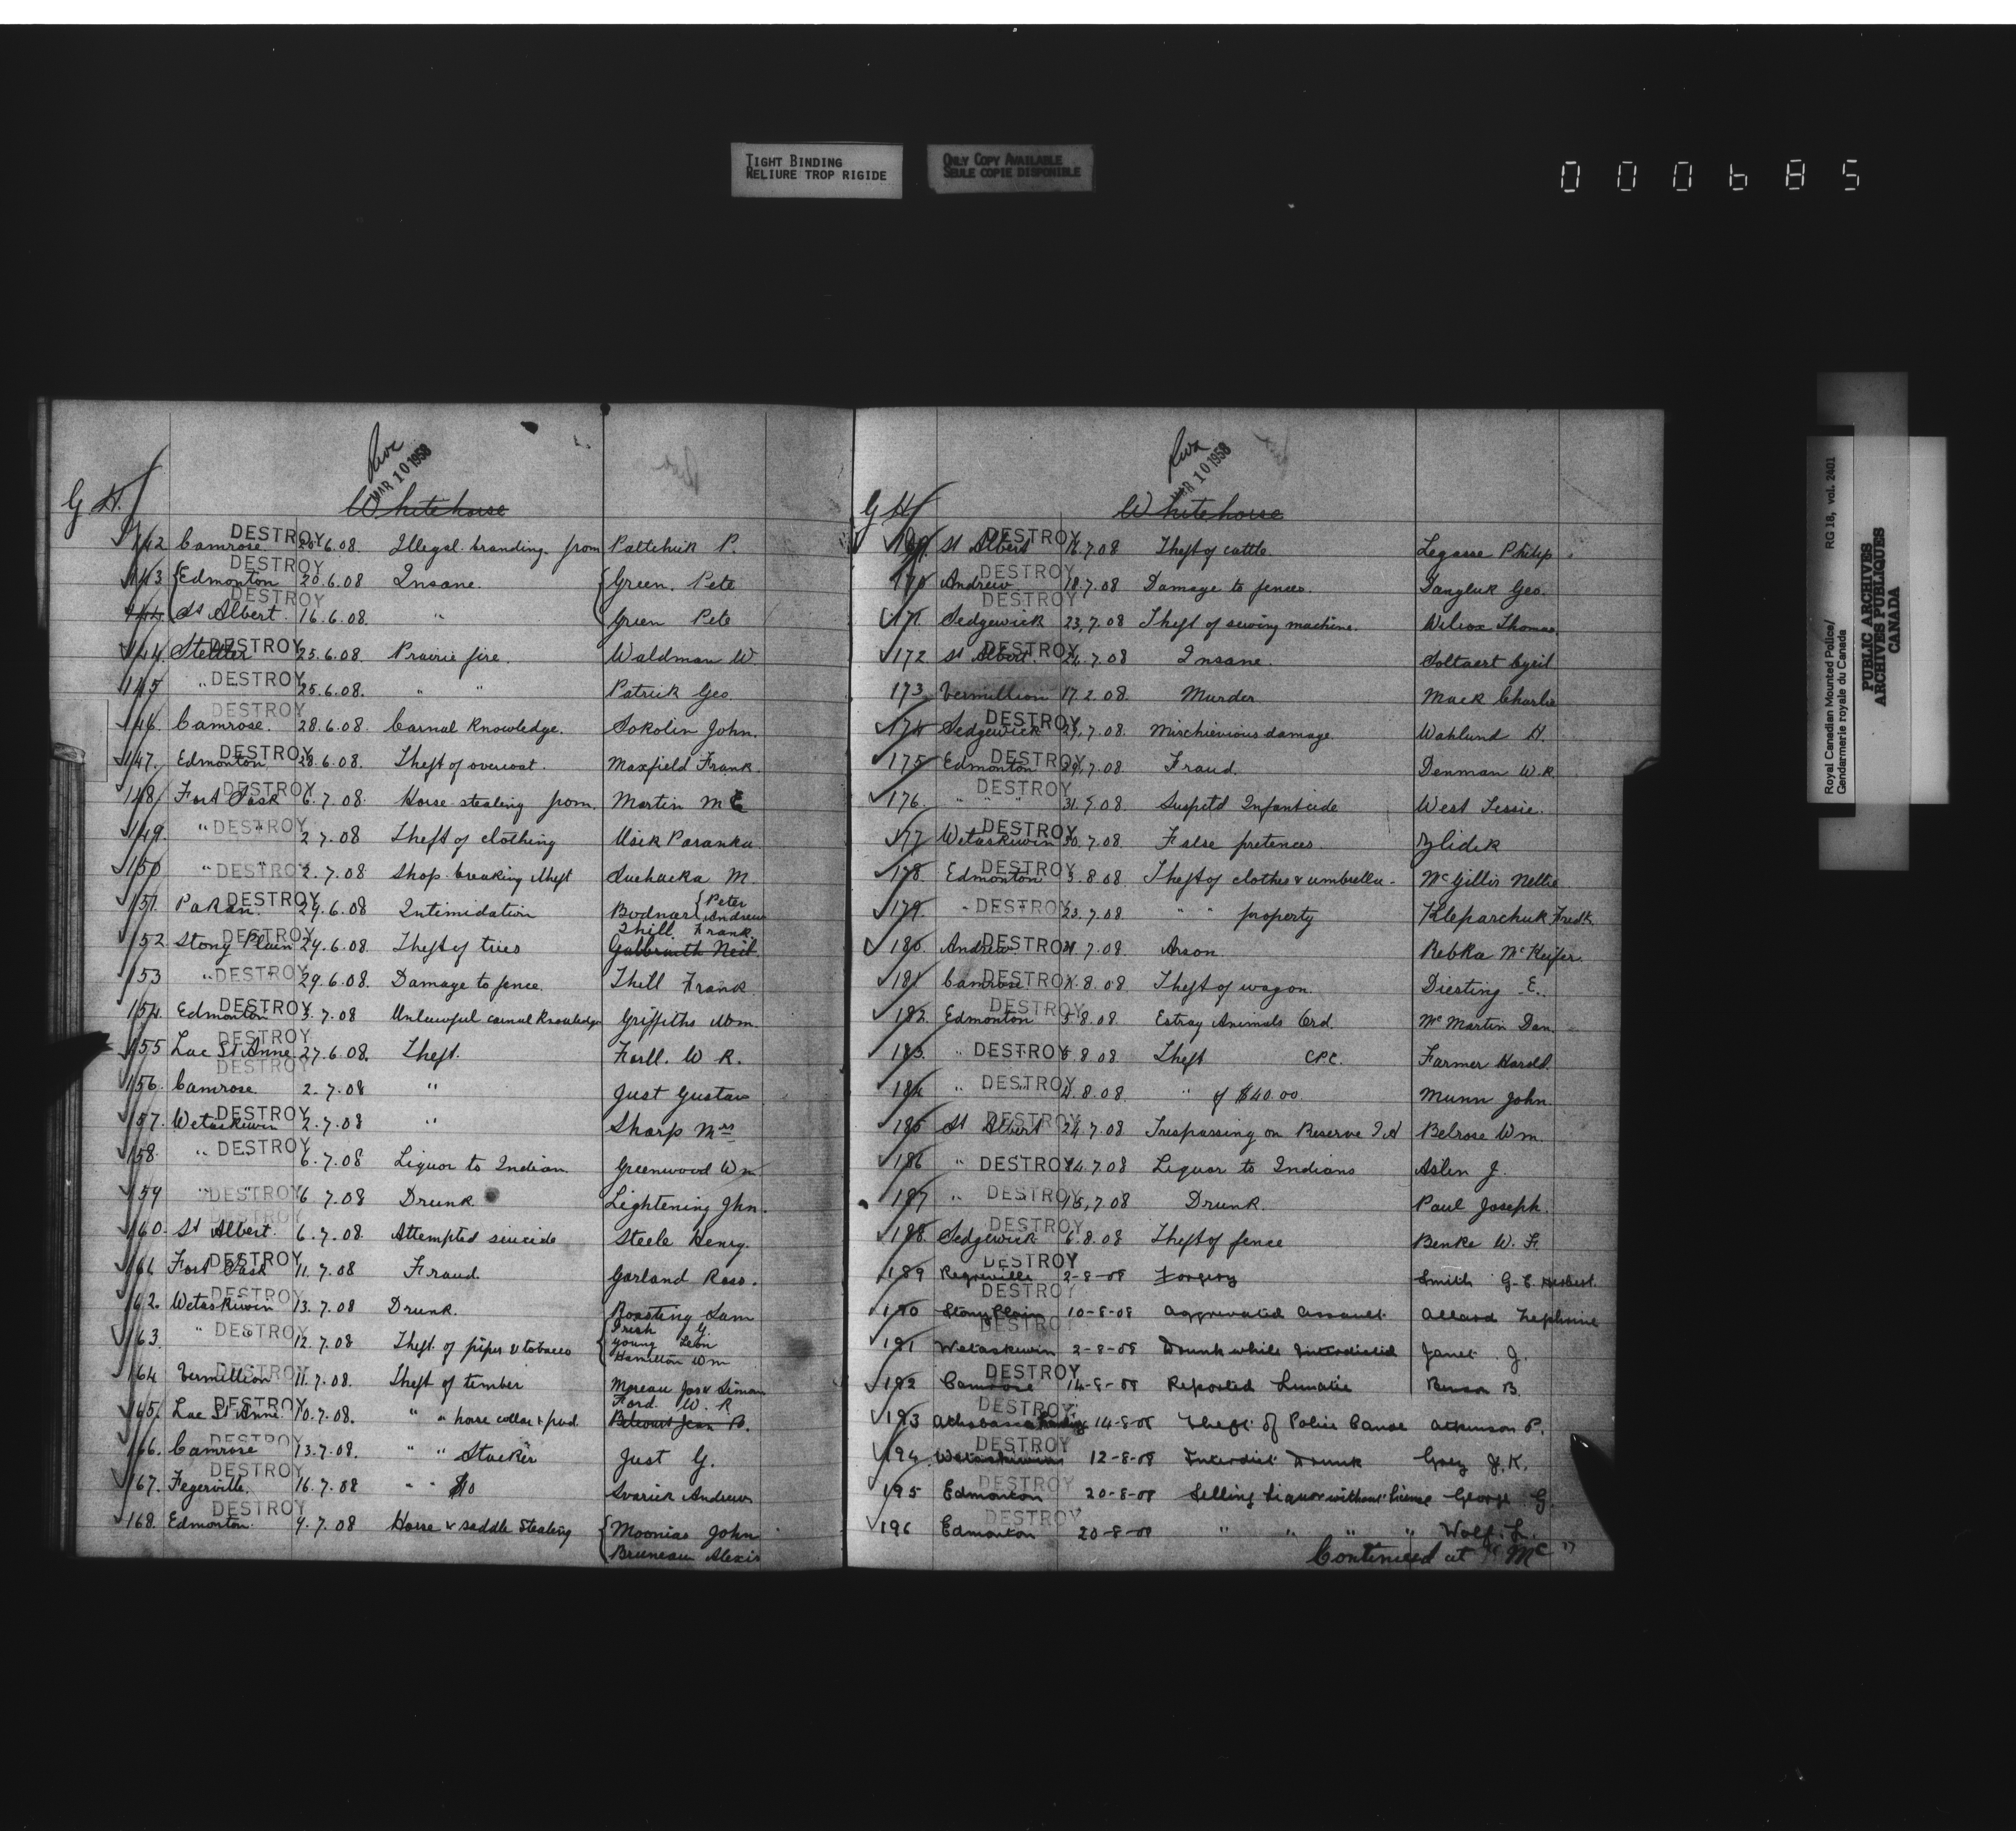 TIGHT BINDING
RELIURE TROP RIGIDE
ONLY COPY AVAILABLE
SEULE COPIE DISPONIBLE
000685
MAR 10 1958
G H.
Whitehorse
142 Camrose 20.6.08. Illegal branding from Paltchick P. DESTROY
143 Edmonton 20.6.08 Insane. Green. Pete DESTROY
144 St Albert 16.6.08. " Green Pete DESTROY
144 Stettler 25.6.08. Prairie fire. Waldman W DESTROY
145 " 25.6.08. " " Patrick Geo DESTROY
146. Camrose. 28.6.08. Carnal Knowledge. Sokolin John. DESTROY
147. Edmonton 28.6.08. Theft of overcoat. Maxfield Frank. DESTROY
148 Fort Sask 6.7.08. Horse stealing from. Martin M DESTROY
149. " " 2.7.08 Theft of clothing Usik Paranka DESTROY
150 " " 2.7.08 Shop breaking & theft Suchacka M. DESTROY
151. Pakan. 29.6.08 Intimidation Bodnar { Peter Andrew DESTROY
Thill. Frank.
152 Stony Plain 29.6.08. Theft of trees Galbraith Neil. DESTROY
153 " " 29.6.08. Damage to fence. Thill Frank DESTROY
154. Edmonton 3.7.08 Unlawful carnal Knowledge Griffiths Wm. DESTROY
155 Lac St Anne 27.6.08. Theft. Forll. W R. DESTROY
156. Camrose. 2.7.08 " Just Gustav DESTROY
157. Wetaskiwin 2.7.08 " Sharp Mrs DESTROY
158. " 6.7.08 Liquor to Indian. Greenwood Wm DESTROY
159 " " 6 7.08 Drunk Lightening Jhn. DESTROY
160. St Albert. 6.7.08. Attempted suicide Steele Henry. DESTROY
161 Fort Sask 11.7.08 Fraud. Garland Ross. DESTROY
162. Wetaskiwin 13.7.08 Drunk. Roasting Sam DESTROY
163. " " 12.7.08 Theft of pipes & tobacco { Irish G. DESTROY
Young Leon
Hamilton Wm
164 Vermillion 11.7.08. Theft of timber Moreau Jos & Simon DESTROY
Ford. W. R.
165. Lac St Anne. 10.7.08. " " horse collar & pad. Belcourt Jean B. DESTROY
166. Camrose 13.7.08. " " Stacker Just G. DESTROY
167. Fegerville. 16.7.08 " " $10 Svarick Andrew DESTROY
168. Edmonton. 9.7.08 Horse & saddle stealing { Moonias John DESTROY
Bruneau Alexis
MAR 10 1958
G H
Whitehorse
169. St Albert 16.7.08 Theft of cattle Legasse Philip DESTROY
170 Andrew 18.7.08 Damage to fences. Dangluk Geo. DESTROY
171. Sedgewick 23.7.08 Theft of sewing machine. Wilcox Thomas. DESTROY
172 St Albert. 24.7.08 Insane. Soltaert Cyril DESTROY
173 Vermillion 17.2.08. Murder Mack Charlie
174 Sedgewick 29.7.08. Mischievious damage Wahlund H. DESTROY
175 Edmonton 29.7.08. Fraud. Denman W.R. DESTROY
176. " " 31.7.08. Suspetd Infanticide West Jessie. DESTROY
177 Wetaskiwin 30.7.08. False pretences Zlidek DESTROY
178. Edmonton 3.8.08 Theft of clothes & umbrella - McGillis Nettie. DESTROY
179. " " 23.7.08 " " property Kleparchuk Fredk. DESTROY
180. Andrew 7.08 Arson. Rebka McKeifer. DESTROY
181 Camrose 8.08. Theft of wagon. Diesting E. DESTROY
182. Edmonton 5.8.08. Estray Animals Ord. McMartin Dan. DESTROY
183. " " 8.08. Theft CPC. Farmer Harold. DESTROY
184 " " 4.8.08. " of $40.00. Munn John. DESTROY
185 St Albert 24.7.08 Trespassing on Reserve I A Belrose Wm. DESTROY
186 " 24.7.08 Liquor to Indians Aslin J. DESTROY
187 " 15.7.08 Drunk. Paul Joseph. DESTROY
188. Sedgewick 6.8.08 Theft of fence Benke W. F. DESTROY
189 2-8-08 Forgery Smith G. E. Herbert. DESTROY
190 Stony Plain 10-8-08 Aggravated Assault Allard Zephirine DESTROY
191 Wetaskiwin 2-8-08 Drunk while Interdicted Janet J. DESTROY
192 Camrose 14-8-08 Reported Lunatic Benson B. DESTROY
193 Athabasca Landing 14-8-08 Theft of Police Canoe Atkinson P. DESTROY
194. Wetaskiwin 12-8-08 Interdict Drunk Grey J.K. DESTROY
195 Edmonton 20-8-08 Selling liquor without license George G. DESTROY
196 Edmonton 20-8-08 " " " " Wolf. L. DESTROY
Continued at "Mc"
Royal Canadian Mounted Police/ RG 18, vol. 2401
Gendarmerie royale du Canada
PUBLIC ARCHIVES
ARCHIVES PUBLIQUES
CANADA